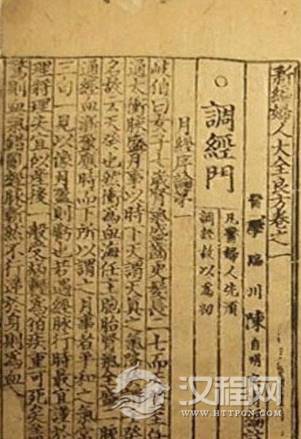 新編婦人大全良方卷之一
醫學臨川陳自明
調經門
凡醫婦人先須
調經故以為初
月經序論第一
岐伯曰女子七歲腎氣盛齒更髮長二七而天癸至任
通太衝脈盛月事以時下天謂天真之氣
之故云天癸也然衝為血海任主胞胎腎氣全盛二
通經血漸盈應時而下所以謂之月事者平和之氣
三旬一見以像月盈則虧也若遇經脈行時最宜謹於
理將理失宜似產後一般受病輕為宿疾重可死矣盖
驚則血氣錯亂經脈漸然不行逆於身則為血
汉程网